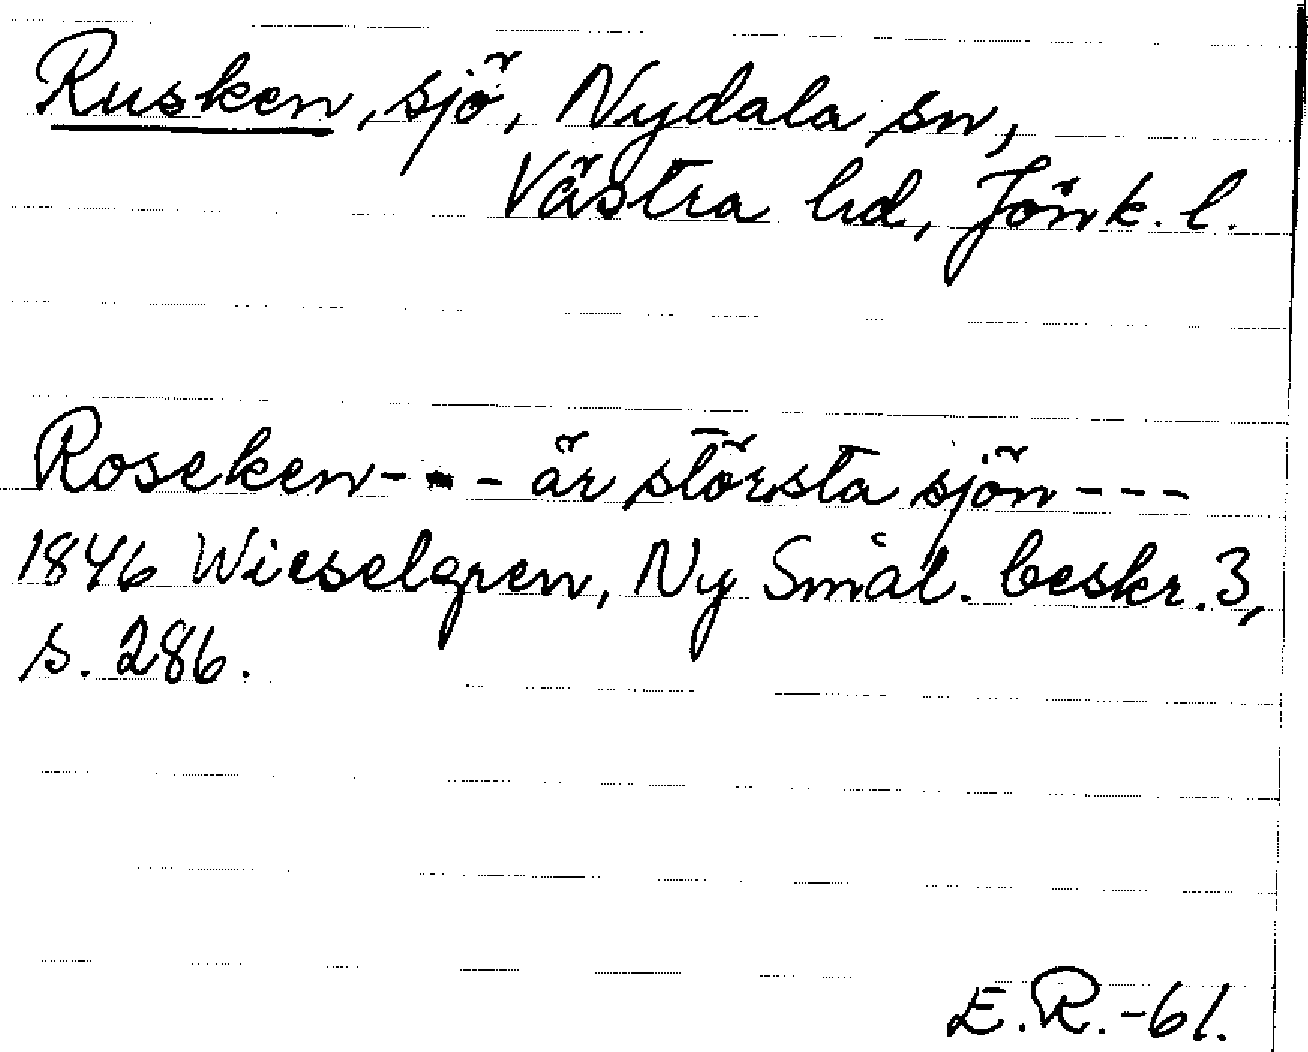 Rusken, sjö, Nydala sn,
Västra hd, Jönk. l.
Roseken - - - är största sjön - - -
1846 Wieselgren, Ny Smål. beskr. 3,
s. 286.
E.R.-61.